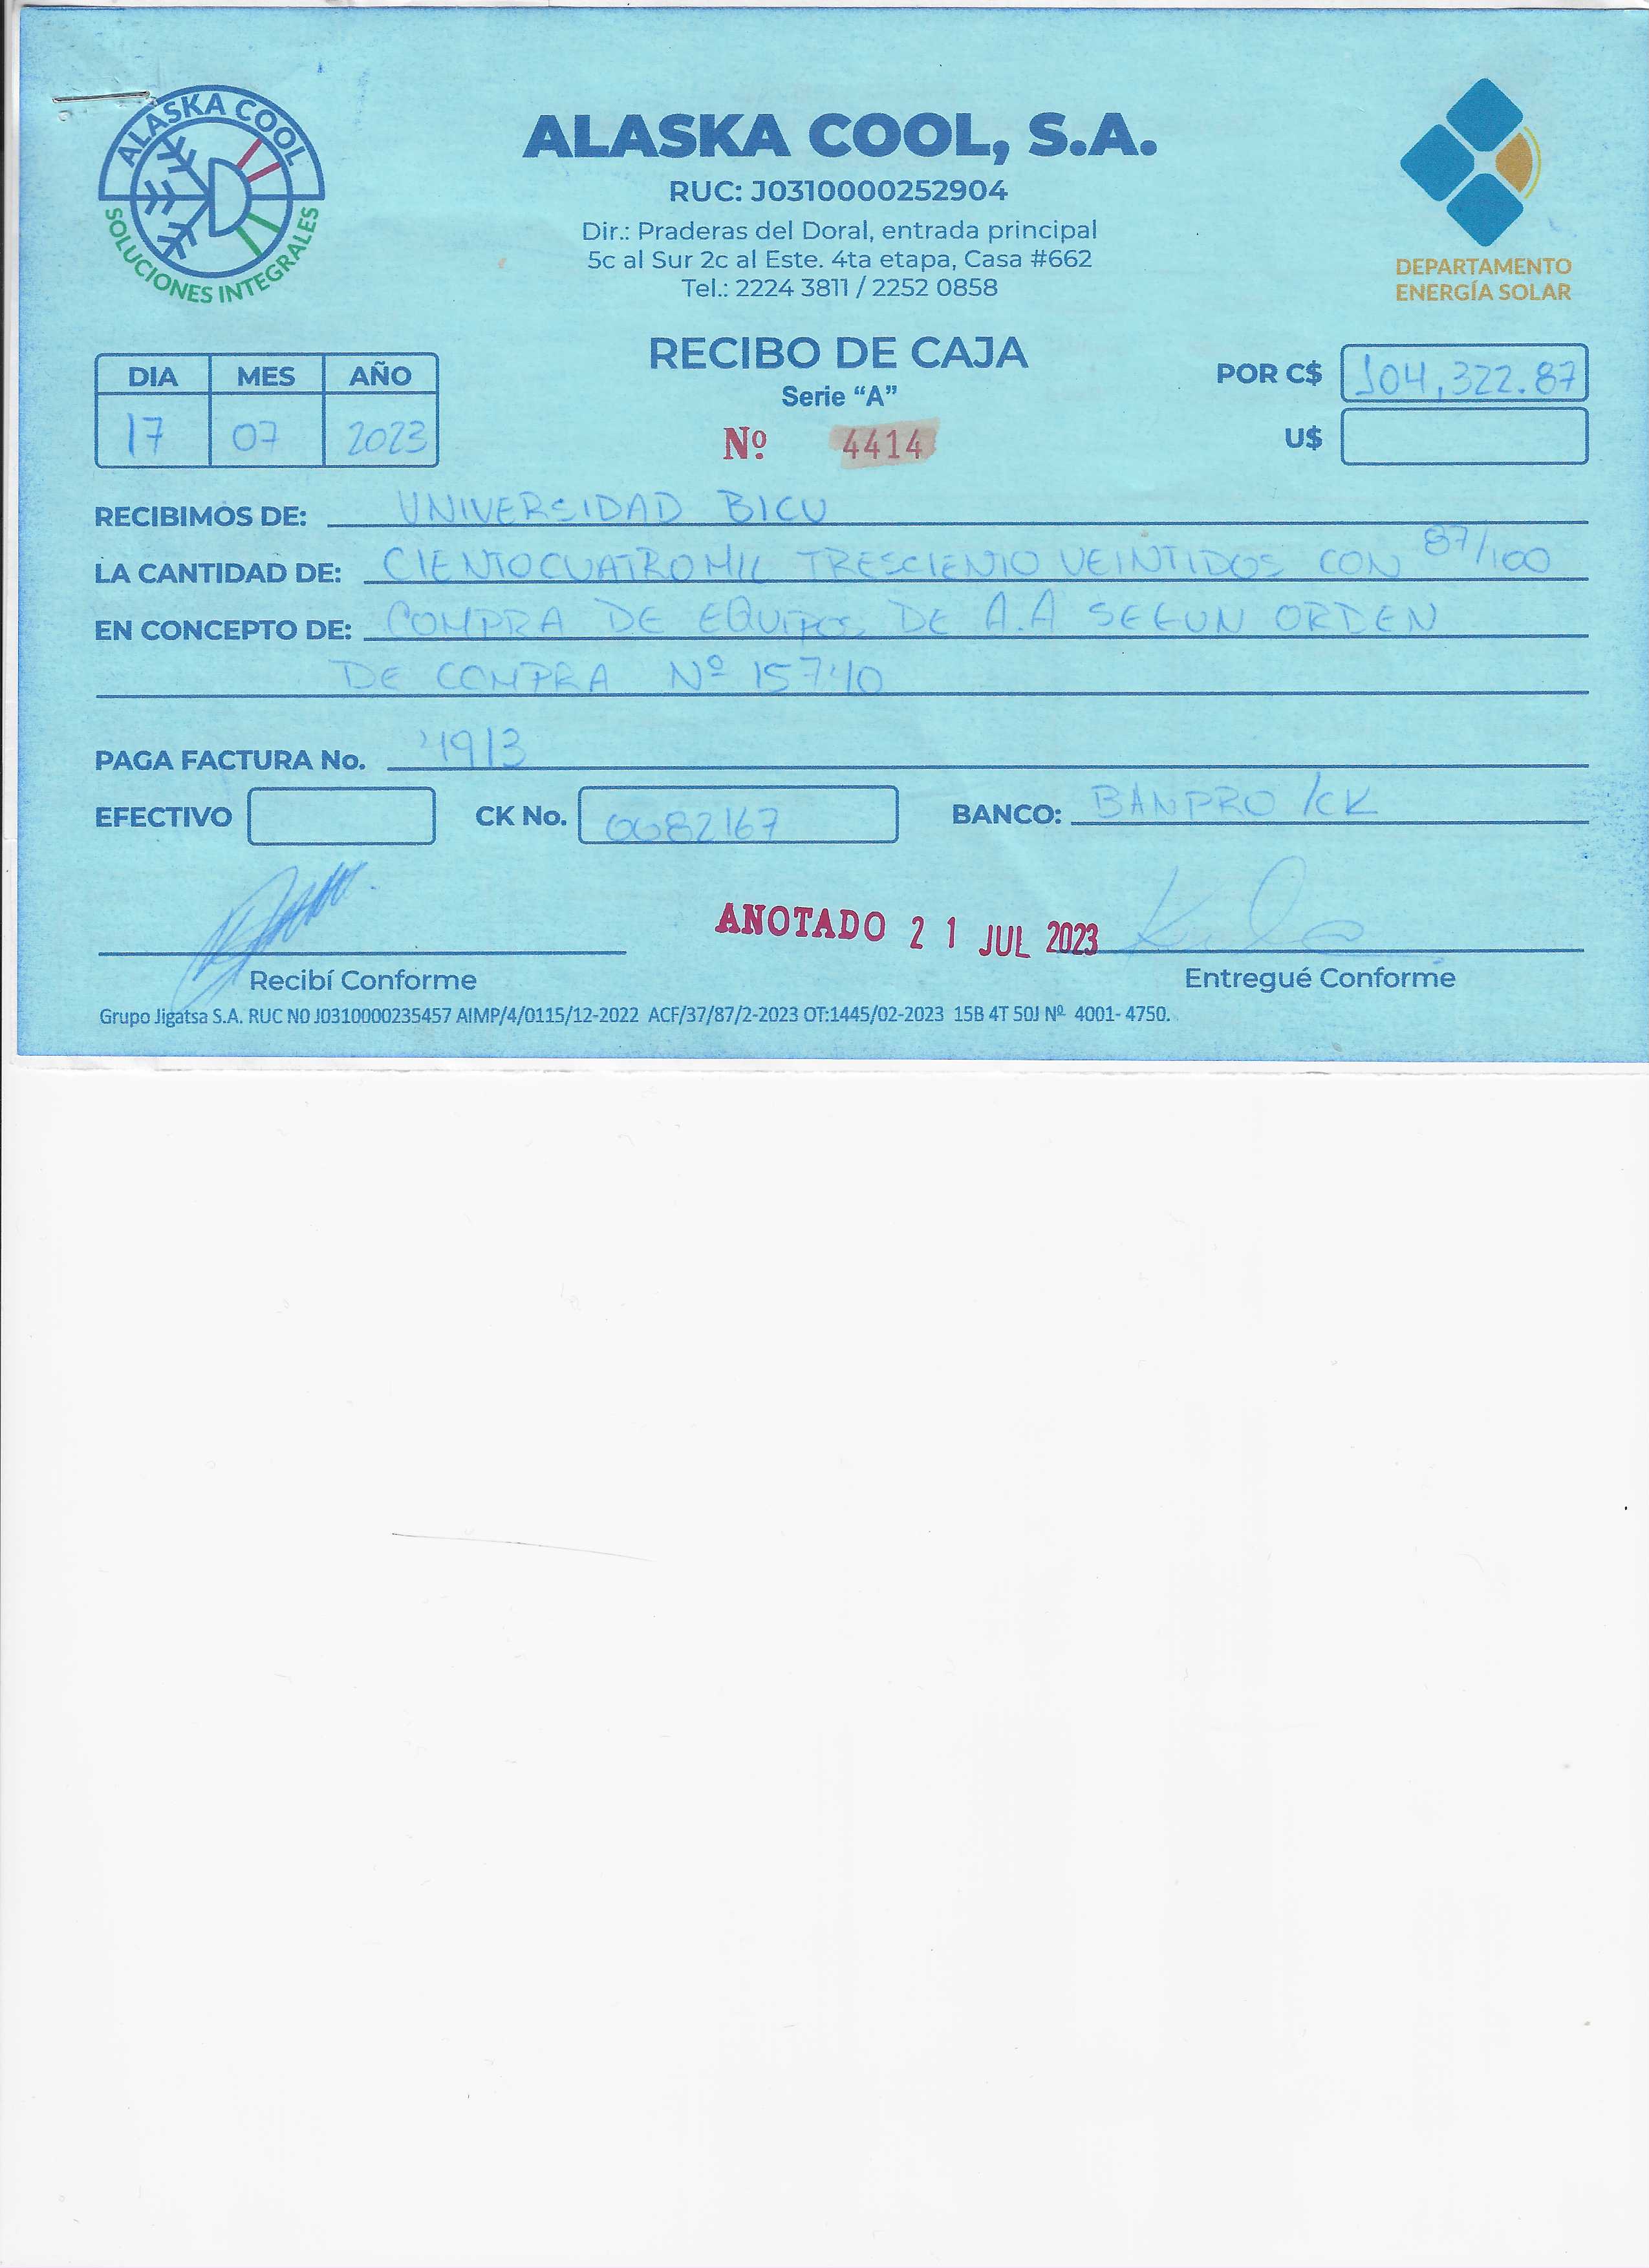 ALASKA COOL
SOLUCIONES INTEGRALES
ALASKA COOL, S.A.
RUC: J0310000252904
Dir.: Praderas del Doral, entrada principal
5c al Sur 2c al Este. 4ta etapa, Casa #662
Tel.: 2224 3811 / 2252 0858
DEPARTAMENTO
ENERGÍA SOLAR
RECIBO DE CAJA
Serie “A”
Nº 4414
DIA MES AÑO
17 07 2023
POR C$ 104,322.87
U$
RECIBIMOS DE: UNIVERSIDAD BICU
LA CANTIDAD DE: CIENTOCUATROMIL TRESCIENTO VEINTIDOS CON 87/100
EN CONCEPTO DE: COMPRA DE EQUIPOS DE A.A SEGUN ORDEN
DE COMPRA Nº 15740
PAGA FACTURA No. 4913
EFECTIVO CK No. 0082167 BANCO: BANPRO /CK
ANOTADO 21 JUL 2023
Recibí Conforme Entregué Conforme
Grupo Jigatsa S.A. RUC N0 J0310000235457 AIMP/4/0115/12-2022 ACF/37/87/2-2023 OT:1445/02-2023 15B 4T 50J Nº 4001- 4750.